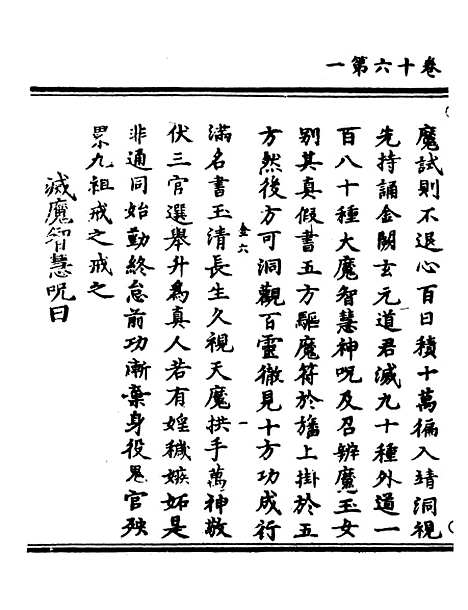 卷十六第一
魔試則不退心百日積十萬徧入靖洞視
先持誦金闕玄元道君滅九十種外道一
百八十種大魔智慧神呪及召辨魔玉女
別其真假書五方驅魔符於旛上掛於五
方然後方可洞觀百靈徹見十方功成行
金六
一
滿名書玉清長生久視天魔拱手萬神敬
伏三官選舉升爲真人若有婬穢嫉妬是
非通同始勤終怠前功漸棄身役鬼官殃
累九祖戒之戒之
滅魔智慧呪曰